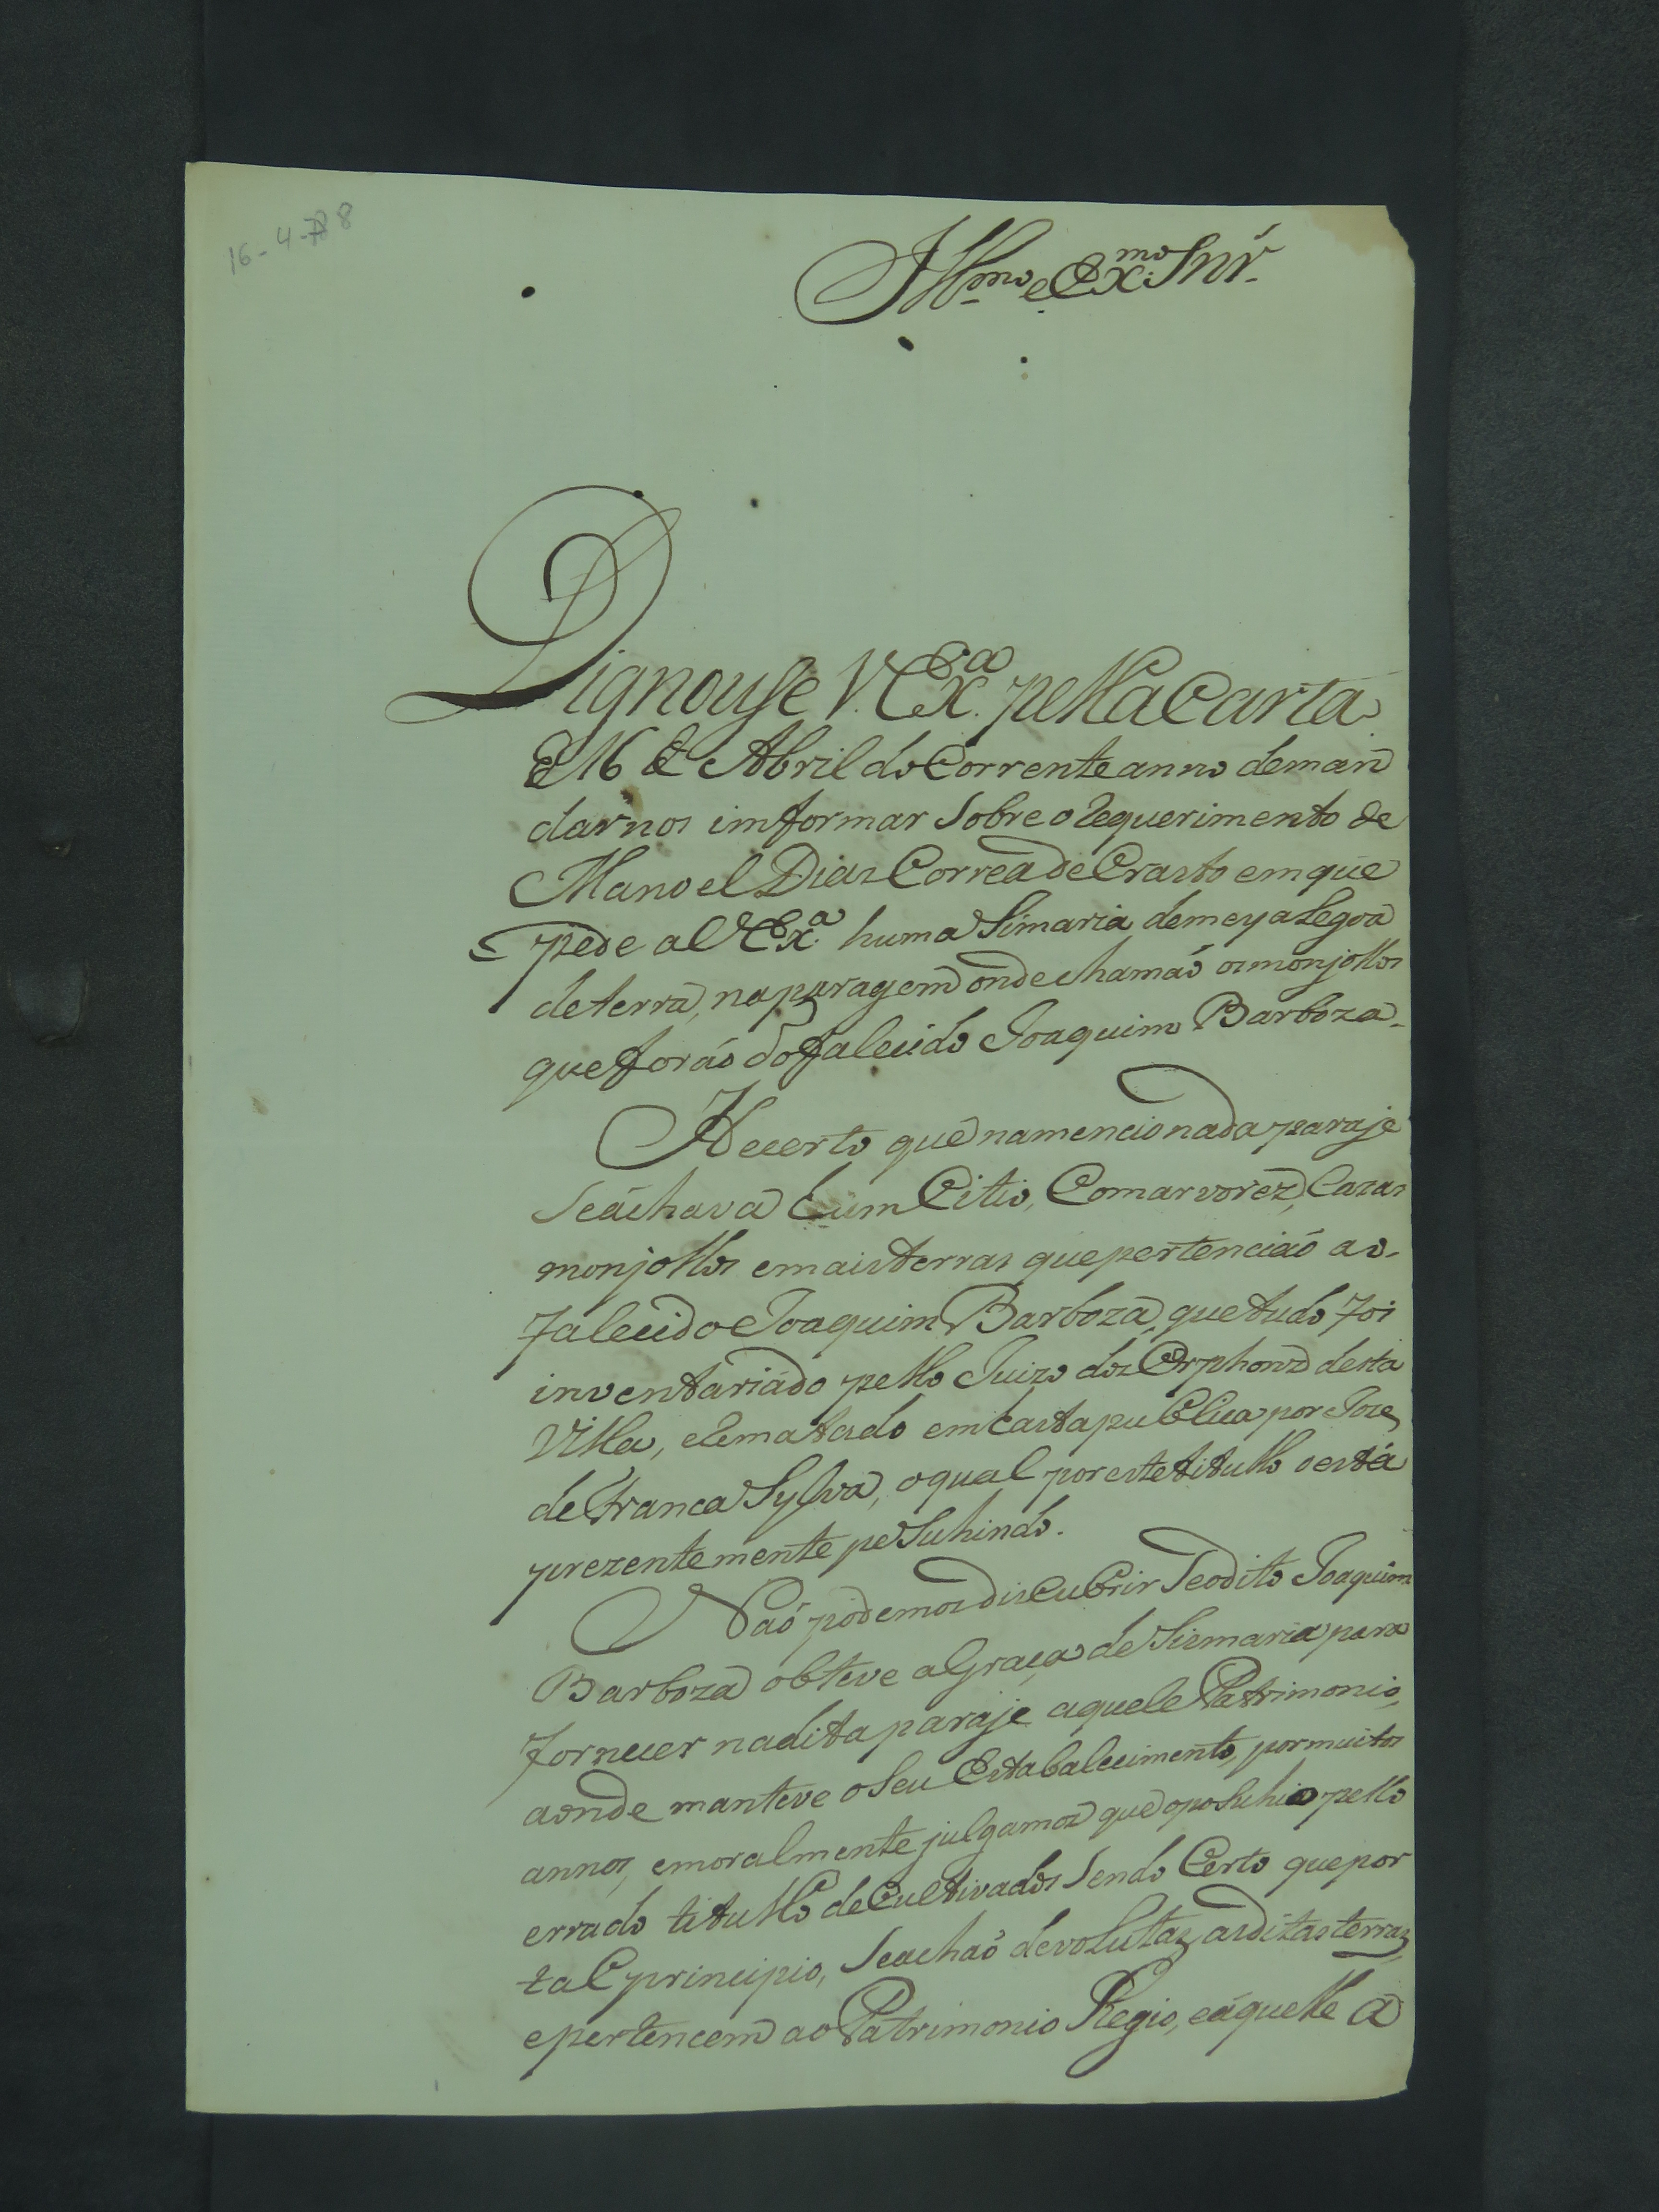 16-4-788
Illmo e Exmo Snr.
Dignouse V. Exa. pella Carta
de 16 de Abril do Corrente anno deman
darnos imformar Sobre o requerimento de
Manoel Dias Correa de Crasto em que
pede a V Exa. huma Simaria de meya Legoa
de terra, na paragem onde chamaó os monjollos
que foraó do falecido Joaquim Barboza.
He certo que na mencionada paraje
Se achava hum Citio, Com arvorez, Cazas
monjollos e mais terras que pertenciaó ao
falecido Joaquim Barboza, que tudo foi
inventariádo pello Juizo dos Orphons desta
Villa, e Rematado em Casta publica por Joze
de Franca Sylva, o qual por este titullo o está
prezentemente pesuhindo.
Naó podemos discubrir Se o dito Joaquim
Barboza obteve a Graça de Sismaria para
fornecer na dita paraje aquele Patrimonio,
aonde manteve o Seu Estabalecimento, por muitos
annos, e moralmente julgamos que o posuhio pello
errado titullo de Cultivados Sendo Certo que por
tal principio, Se achaó devolutas as ditas terras,
e pertencem ao Patrimonio Regio, e áquelle a